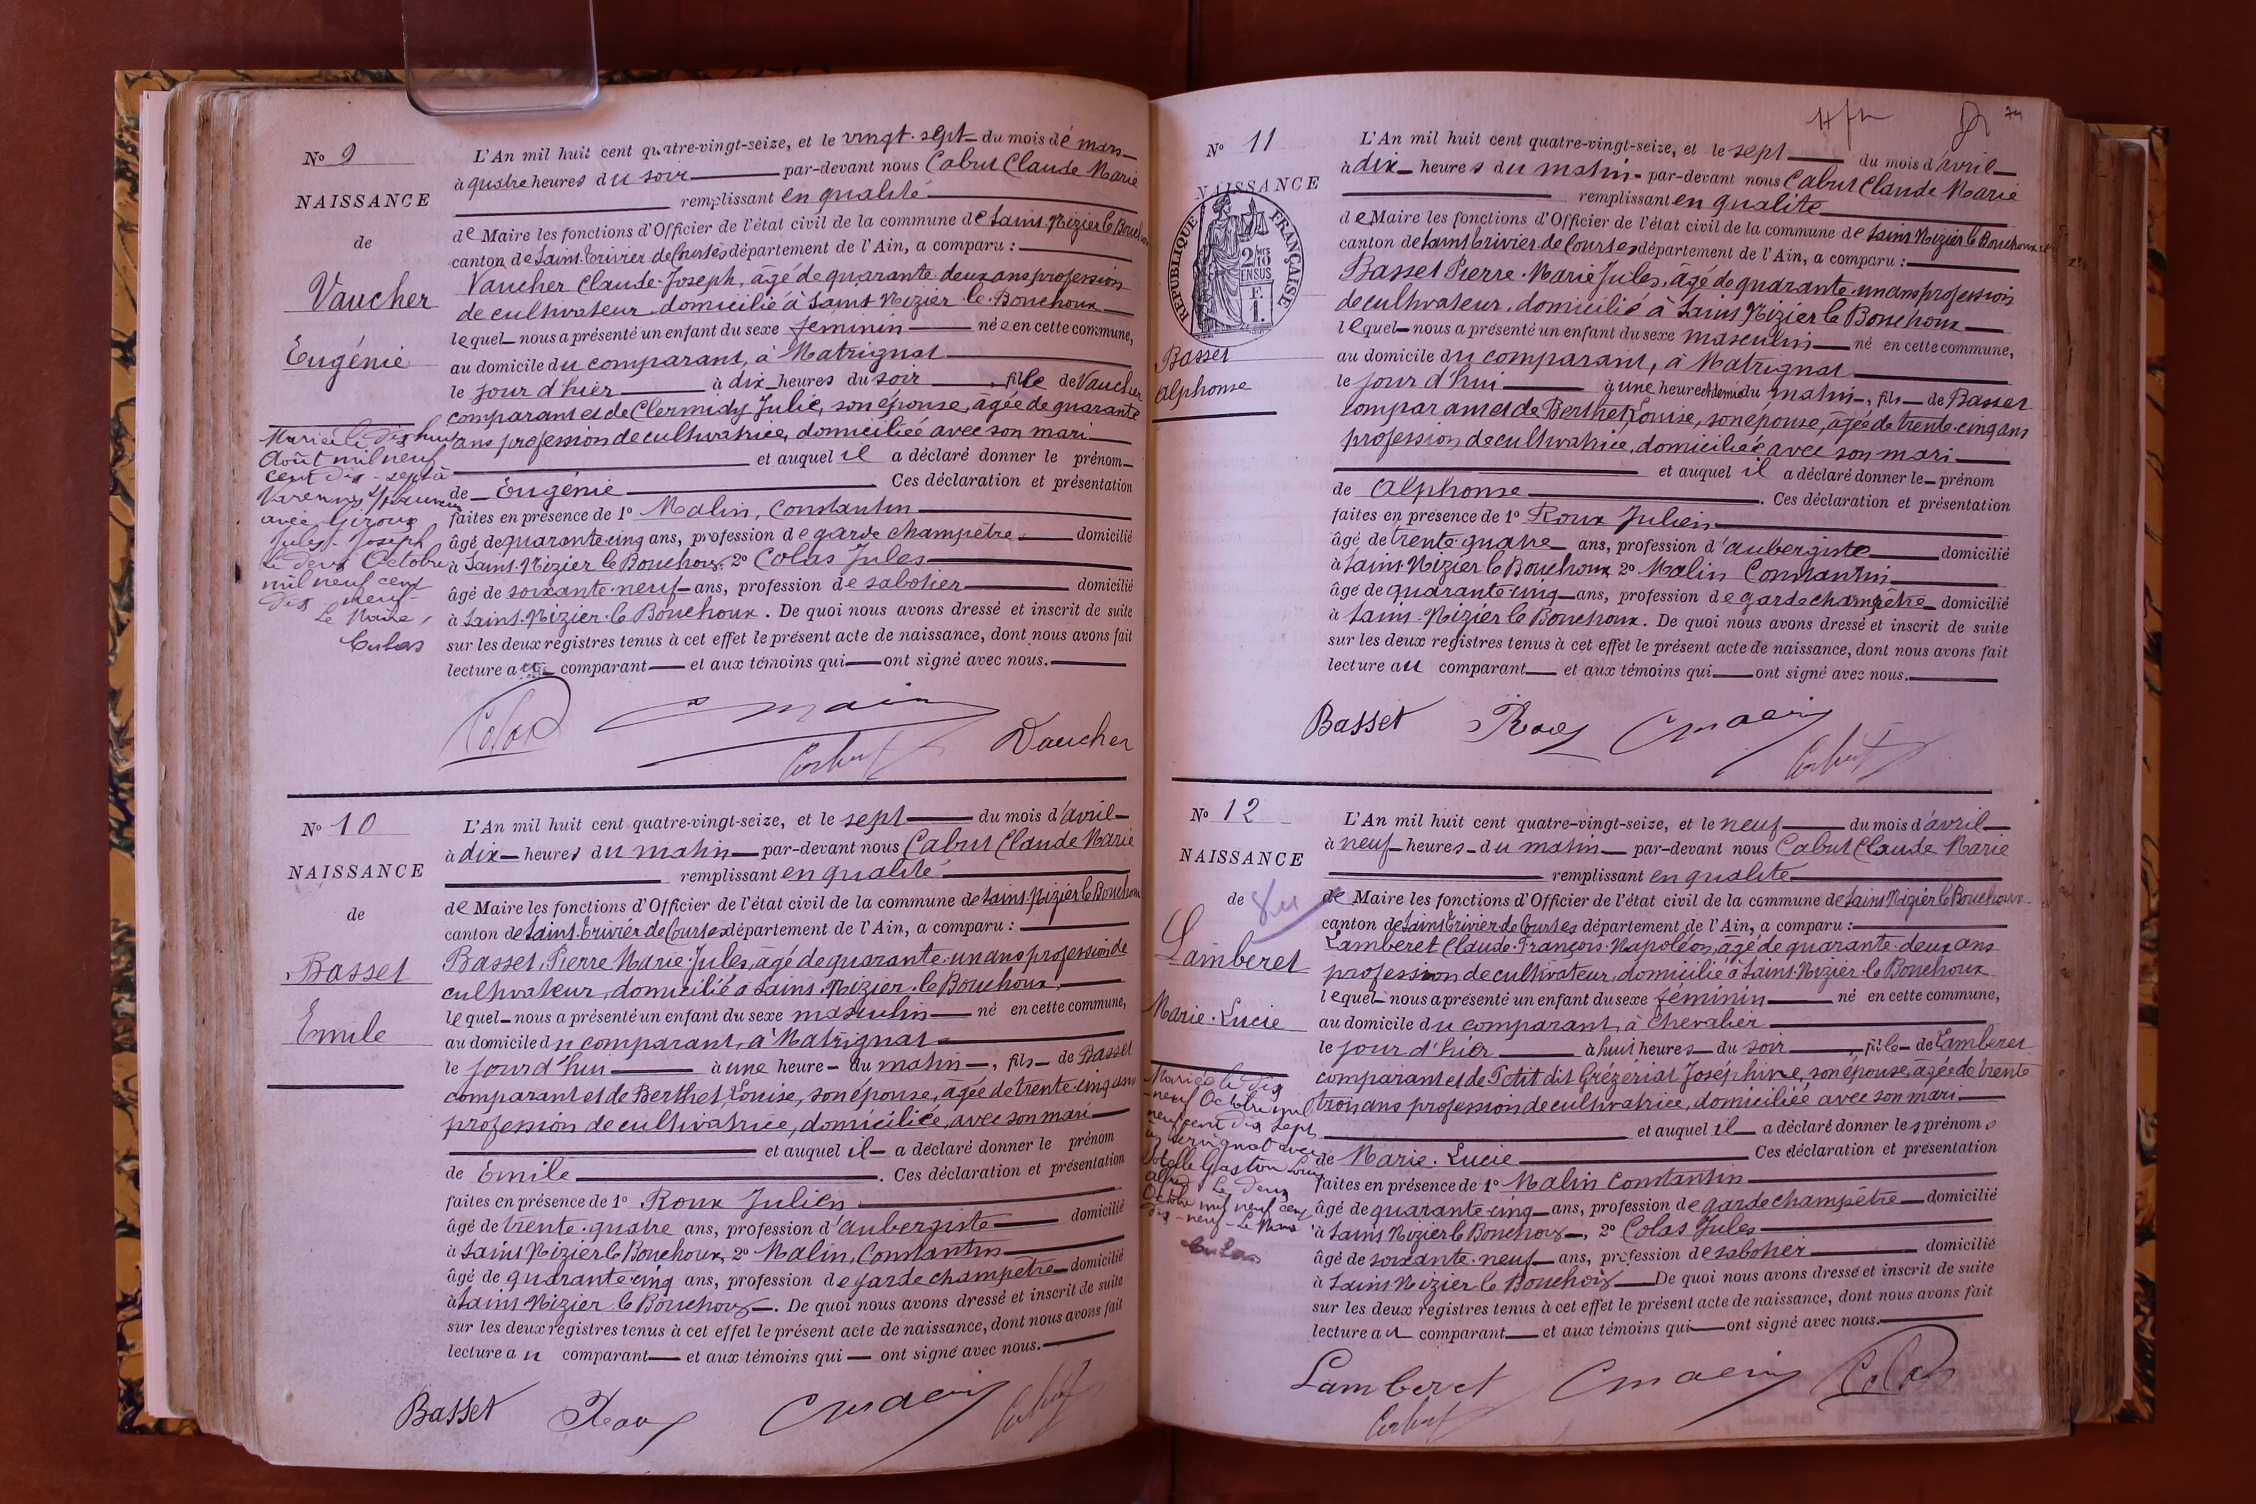 No 9
NAISSANCE
de
Vaucher
Eugénie
Mariée le dix huit
Août mil neuf
cent dix-sept à
Varennes
avec Giroux
Jules-Joseph
Le deux Octobre
mil neuf cent
dix neuf
Le Maire,
L'An mil huit cent quatre-vingt-seize, et le vingt-sept du mois de mars
à quatre heures du soir par-devant nous Cabut Claude Marie
remplissant en qualité
de Maire les fonctions d'Officier de l'état civil de la commune de Saint-Nizier le Bouchoux
canton de Saint-Trivier de Courtes département de l'Ain, a comparu :
Vaucher Claude-Joseph, âgé de quarante-deux ans profession
de cultivateur, domicilié à Saint-Nizier-le-Bouchoux
lequel nous a présenté un enfant du sexe féminin née en cette commune,
au domicile du comparant, à Matrignat
le jour d'hier à dix heures du soir, fille de Vaucher
comparant et de Clermidy Julie, son épouse, âgée de quarante
ans profession de cultivatrice, domiciliée avec son mari
et auquel il a déclaré donner le prénom
de Eugénie Ces déclaration et présentation
faites en présence de 1º Malin, Constantin
âgé de quarante-cinq ans, profession de garde champêtre domicilié
à Saint-Nizier le Bouchoux, 2º Colas Jules
âgé de soixante-neuf ans, profession de sabotier domicilié
à Saint-Nizier-le-Bouchoux. De quoi nous avons dressé et inscrit de suite
sur les deux registres tenus à cet effet le présent acte de naissance, dont nous avons fait
lecture au comparant et aux témoins qui ont signé avec nous.
Colas Cmalin
Cabut Vaucher
No 10
NAISSANCE
de
Basset
Emile
L'An mil huit cent quatre-vingt-seize, et le sept du mois d'avril
à dix heures du matin par-devant nous Cabut Claude Marie
remplissant en qualité
de Maire les fonctions d'Officier de l'état civil de la commune de Saint-Nizier le Bouchoux
canton de Saint-Trivier de Courtes département de l'Ain, a comparu :
Basset, Pierre Marie-Jules, âgé de quarante-un ans profession de
cultivateur, domicilié à Saint-Nizier-le-Bouchoux
lequel nous a présenté un enfant du sexe masculin né en cette commune,
au domicile du comparant, à Matrignat
le jour d'hui à une heure du matin, fils de Basset
comparant et de Berthet Louise, son épouse, âgée de trente-cinq ans
profession de cultivatrice, domiciliée avec son mari
et auquel il a déclaré donner le prénom
de Emile. Ces déclaration et présentation
faites en présence de 1º Roux Julien
âgé de trente-quatre ans, profession d'aubergiste domicilié
à Saint Nizier le Bouchoux, 2º Malin, Constantin
âgé de quarante cinq ans, profession de garde champêtre domicilié
à Saint-Nizier-le Bouchoux. De quoi nous avons dressé et inscrit de suite
sur les deux registres tenus à cet effet le présent acte de naissance, dont nous avons fait
lecture au comparant et aux témoins qui ont signé avec nous.
Basset Roux Cmalin Cabut
74
No 11
NAISSANCE
RÉPUBLIQUE FRANÇAISE
2/10 EN SUS
Basset
Alphonse
L'An mil huit cent quatre-vingt-seize, et le sept du mois d'avril
à dix heures du matin par-devant nous Cabut Claude Marie
remplissant en qualité
de Maire les fonctions d'Officier de l'état civil de la commune de Saint Nizier le Bouchoux
canton de Saint Trivier de Courtes département de l'Ain, a comparu :
Basset Pierre-Marie Jules, âgé de quarante-un ans profession
de cultivateur, domicilié à Saint Nizier le Bouchoux
lequel nous a présenté un enfant du sexe masculin né en cette commune,
au domicile du comparant, à Matrignat
le jour d'hui à une heure et demie du matin, fils de Basset
comparant et de Berthet Louise, son épouse, âgée de trente-cinq ans
profession de cultivatrice, domiciliée avec son mari
et auquel il a déclaré donner le prénom
de Alphonse. Ces déclaration et présentation
faites en présence de 1º Roux Julien
âgé de trente quatre ans, profession d'aubergiste domicilié
à Saint Nizier le Bouchoux 2º Malin Constantin
âgé de quarante cinq ans, profession de garde champêtre domicilié
à Saint-Nizier le Bouchoux. De quoi nous avons dressé et inscrit de suite
sur les deux registres tenus à cet effet le présent acte de naissance, dont nous avons fait
lecture au comparant et aux témoins qui ont signé avec nous.
Basset Roux Cmalin Cabut
No 12
NAISSANCE
de
Lamberet
Marie-Lucie
Mariée le dix
neuf Octobre mil
neuf cent dix sept
à Servignat avec
Gaston Louis
Alfred. Le deux
Octobre mil neuf cent
dix-neuf-Le Maire
L'An mil huit cent quatre-vingt-seize, et le neuf du mois d'avril
à neuf heures du matin par-devant nous Cabut Claude Marie
remplissant en qualité
de Maire les fonctions d'Officier de l'état civil de la commune de Saint Nizier le Bouchoux
canton de Saint Trivier de Courtes département de l'Ain, a comparu :
Lamberet Claude-François-Napoléon, âgé de quarante-deux ans
profession de cultivateur, domicilié à Saint-Nizier-le Bouchoux
lequel nous a présenté un enfant du sexe féminin né en cette commune,
au domicile du comparant, à Chevalier
le jour d'hier à huit heures du soir, fille de Lamberet
comparant et de Petit dit Grézériat Joséphine, son épouse, âgée de trente
trois ans profession de cultivatrice, domiciliée avec son mari
et auquel il a déclaré donner les prénoms
de Marie-Lucie Ces déclaration et présentation
faites en présence de 1º Malin Constantin
âgé de quarante-cinq ans, profession de garde champêtre domicilié
à Saint Nizier le Bouchoux, 2º Colas Jules
âgé de soixante-neuf ans, profession de sabotier domicilié
à Saint Nizier le Bouchoux De quoi nous avons dressé et inscrit de suite
sur les deux registres tenus à cet effet le présent acte de naissance, dont nous avons fait
lecture au comparant et aux témoins qui ont signé avec nous.
Lamberet Cmalin Colas
Cabut